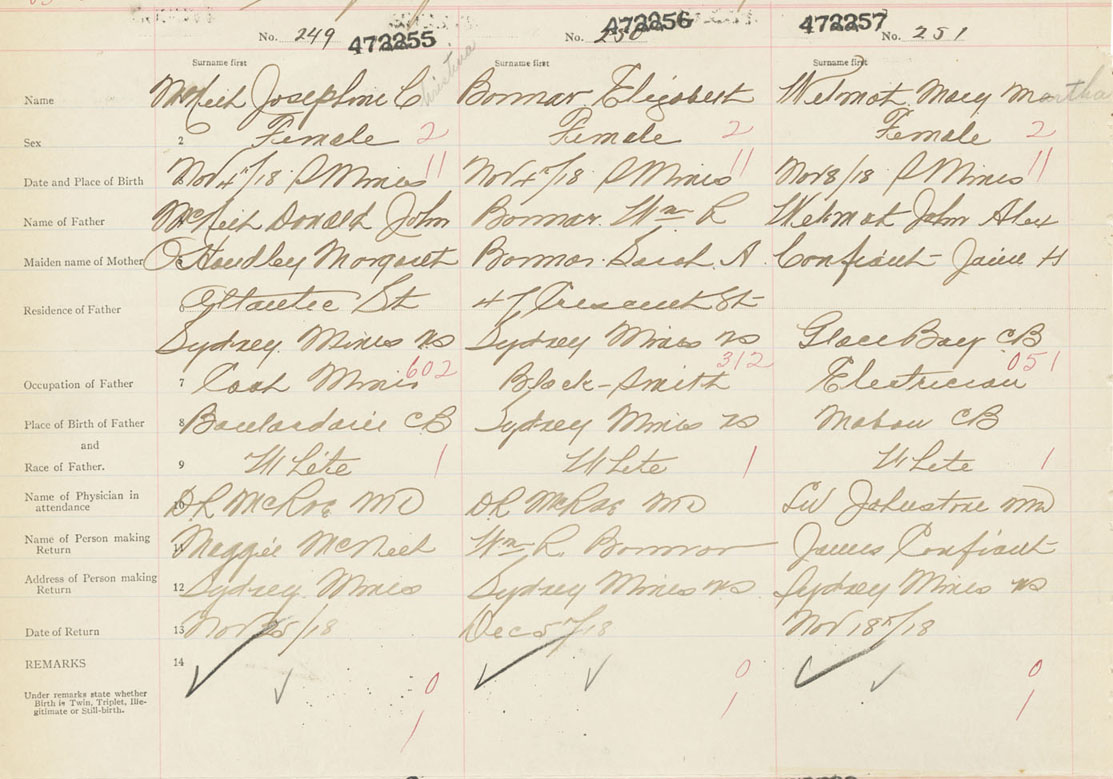 No. 249 472255 No. 250 472256 472257 No. 251
Surname first Surname first Surname first
Name McNeil Josephine C Bonnar Elizabeth Wilmot Mary Martha
Sex 2 Female 2 Female 2 Female 2
Date and Place of Birth Nov 4th/18 S Mines 11 Nov 4th/18 S Mines 11 Nov 8/18 S Mines 11
Name of Father McNeil Donald John Bonnar Wm R Wilmot John Alex
Maiden name of Mother O'Handley Margaret Bonnar Sarah A Confiant Janie H
Residence of Father Atlantic St 47 Crescent St
Sydney Mines NS Sydney Mines NS Glace Bay CB
Occupation of Father 7 Coal Miner 602 Black-Smith 312 Electrician 051
Place of Birth of Father 8 Boulardarie CB Sydney Mines NS Mabou CB
and
Race of Father. 9 White 1 White 1 White 1
Name of Physician in
attendance 10 DR McRae MD DR McRae MD Johnstone MD
Name of Person making
Return 11 Maggie McNeil Wm R Bonnar James Confiant
Address of Person making
Return 12 Sydney Mines Sydney Mines NS Sydney Mines NS
Date of Return 13 Nov 25/18 Dec 5th/18 Nov 18th/18
REMARKS 14
0 0 0
Under remarks state whether
Birth is Twin, Triplet, Ille-
gitimate or Still-birth.
1 1 1